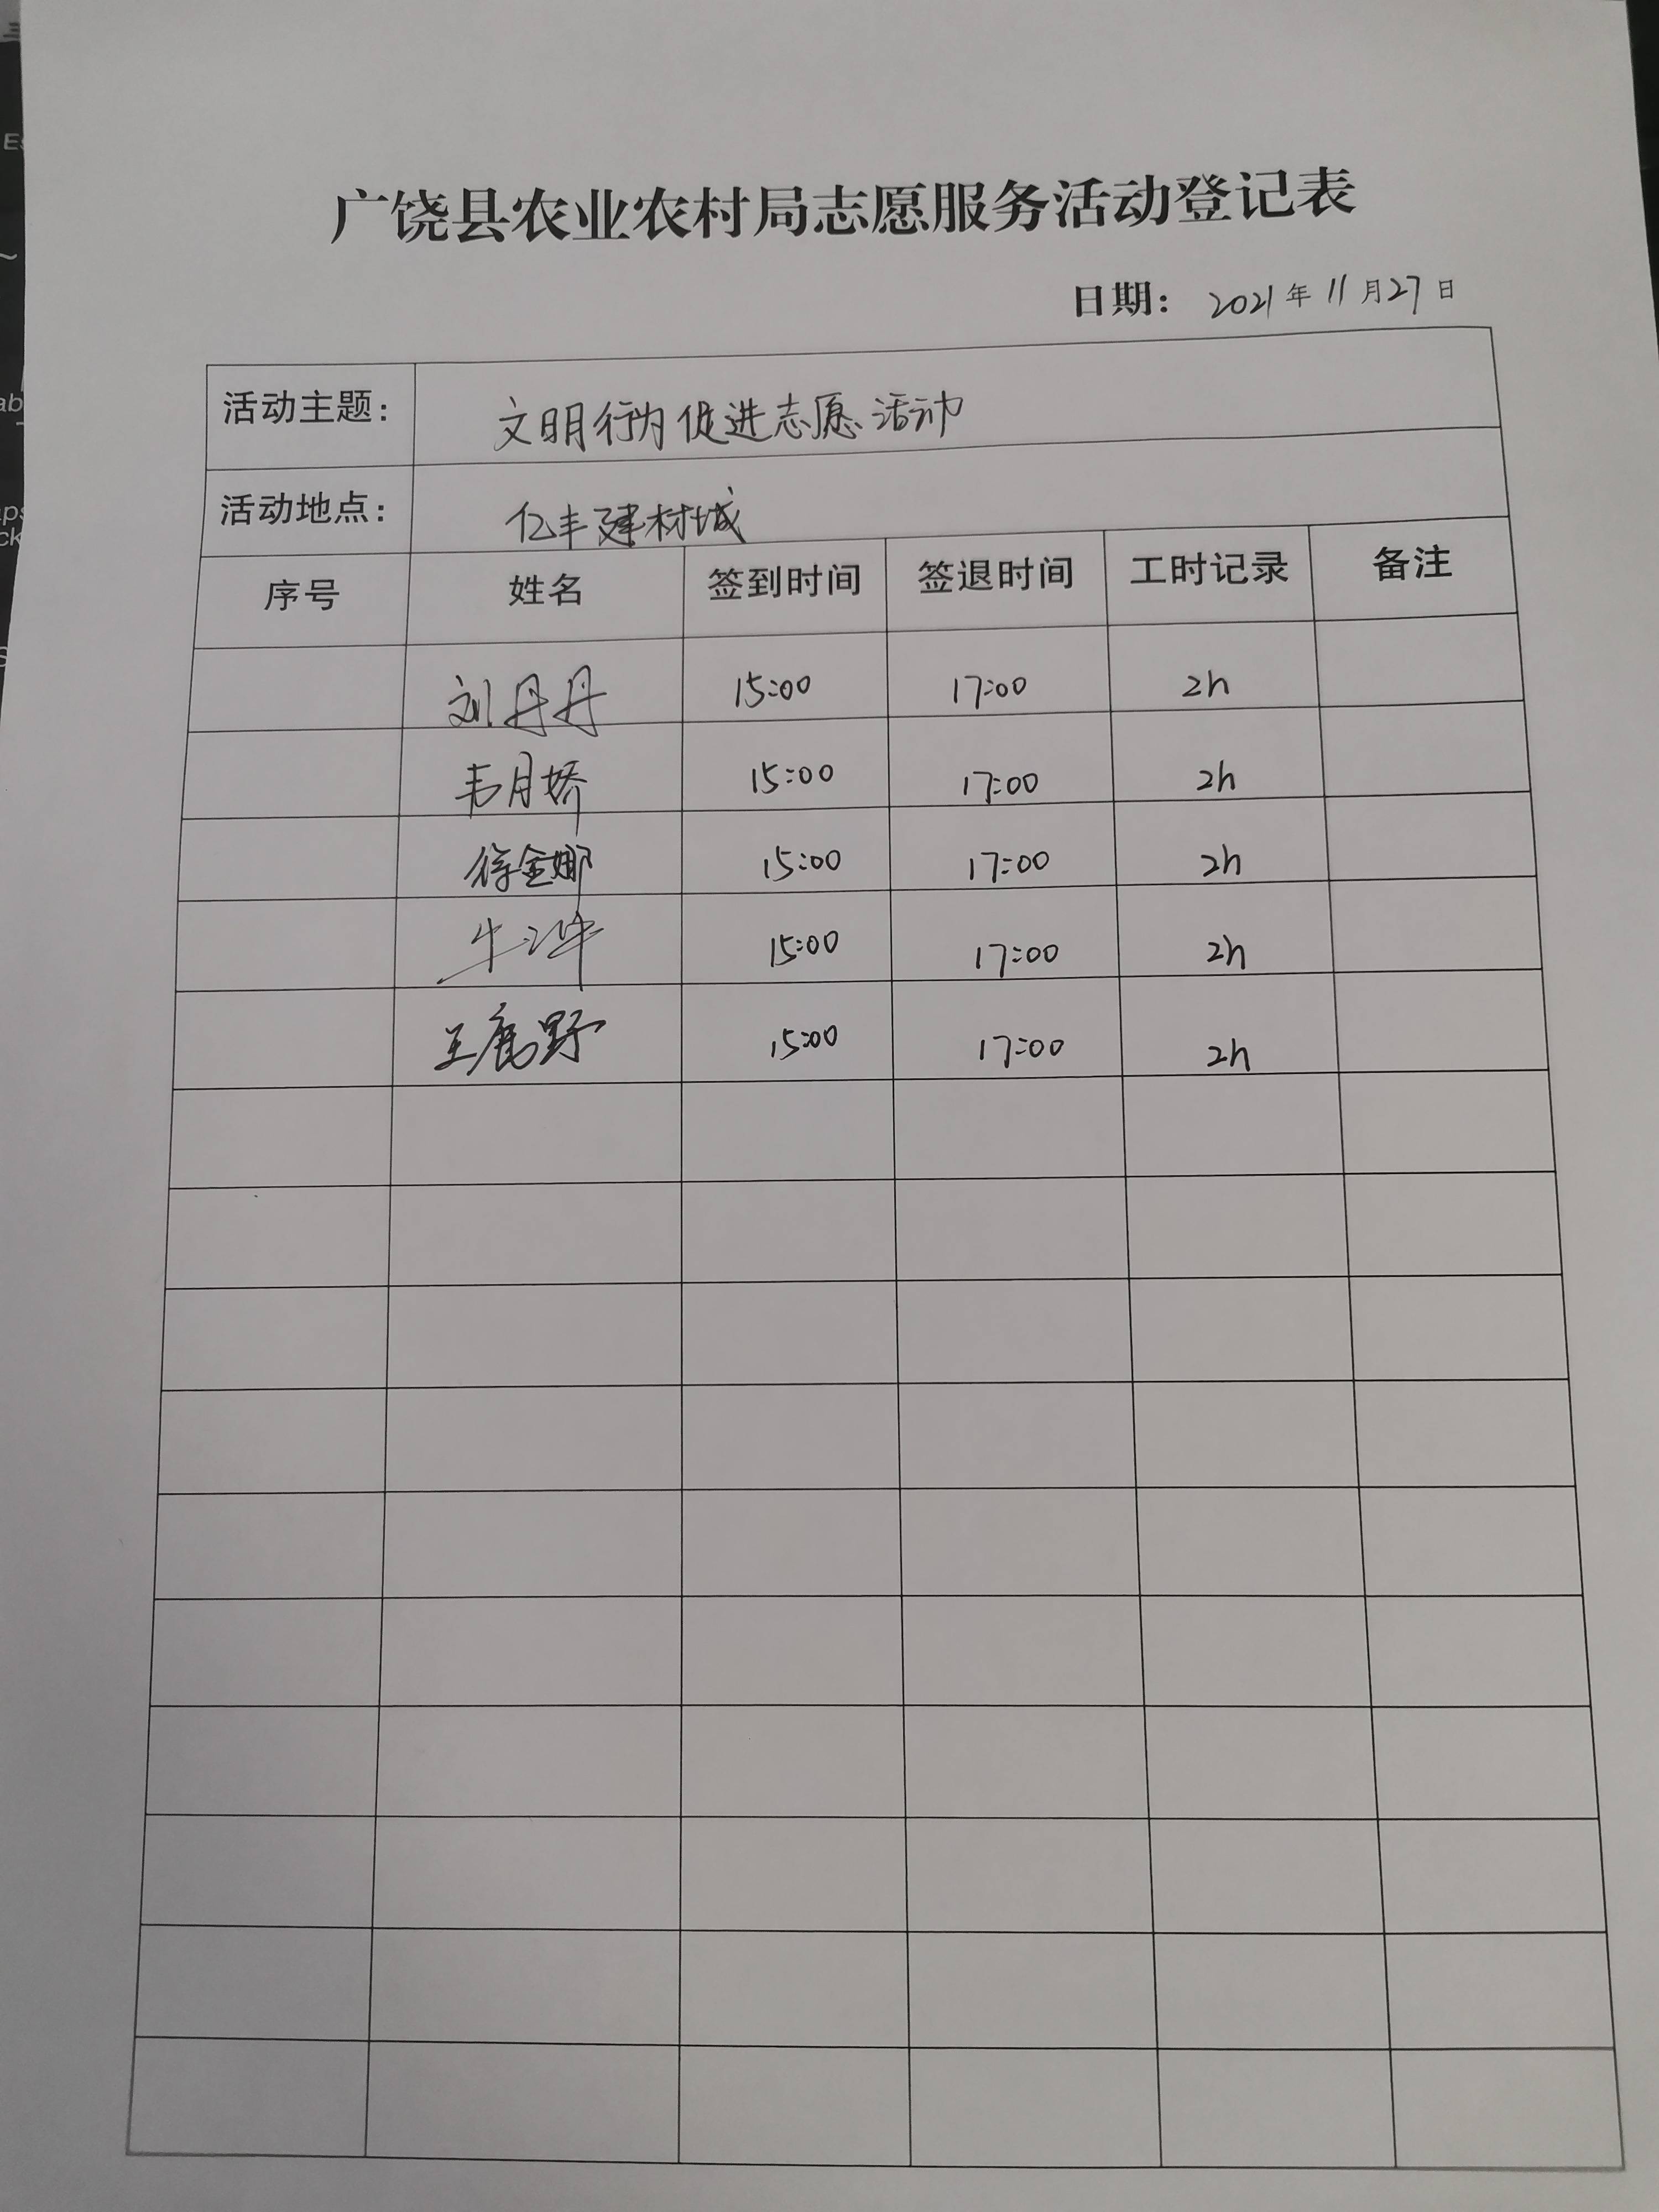 广饶县农业农村局志愿服务活动登记表
日期： 2021年11月27日
活动主题： 文明行为促进志愿活动
活动地点： 亿丰建材城
序号 姓名 签到时间 签退时间 工时记录 备注
刘丹丹 15:00 17:00 2h
韦月娇 15:00 17:00 2h
徐金娜 15:00 17:00 2h
牛 15:00 17:00 2h
王鹿野 15:00 17:00 2h